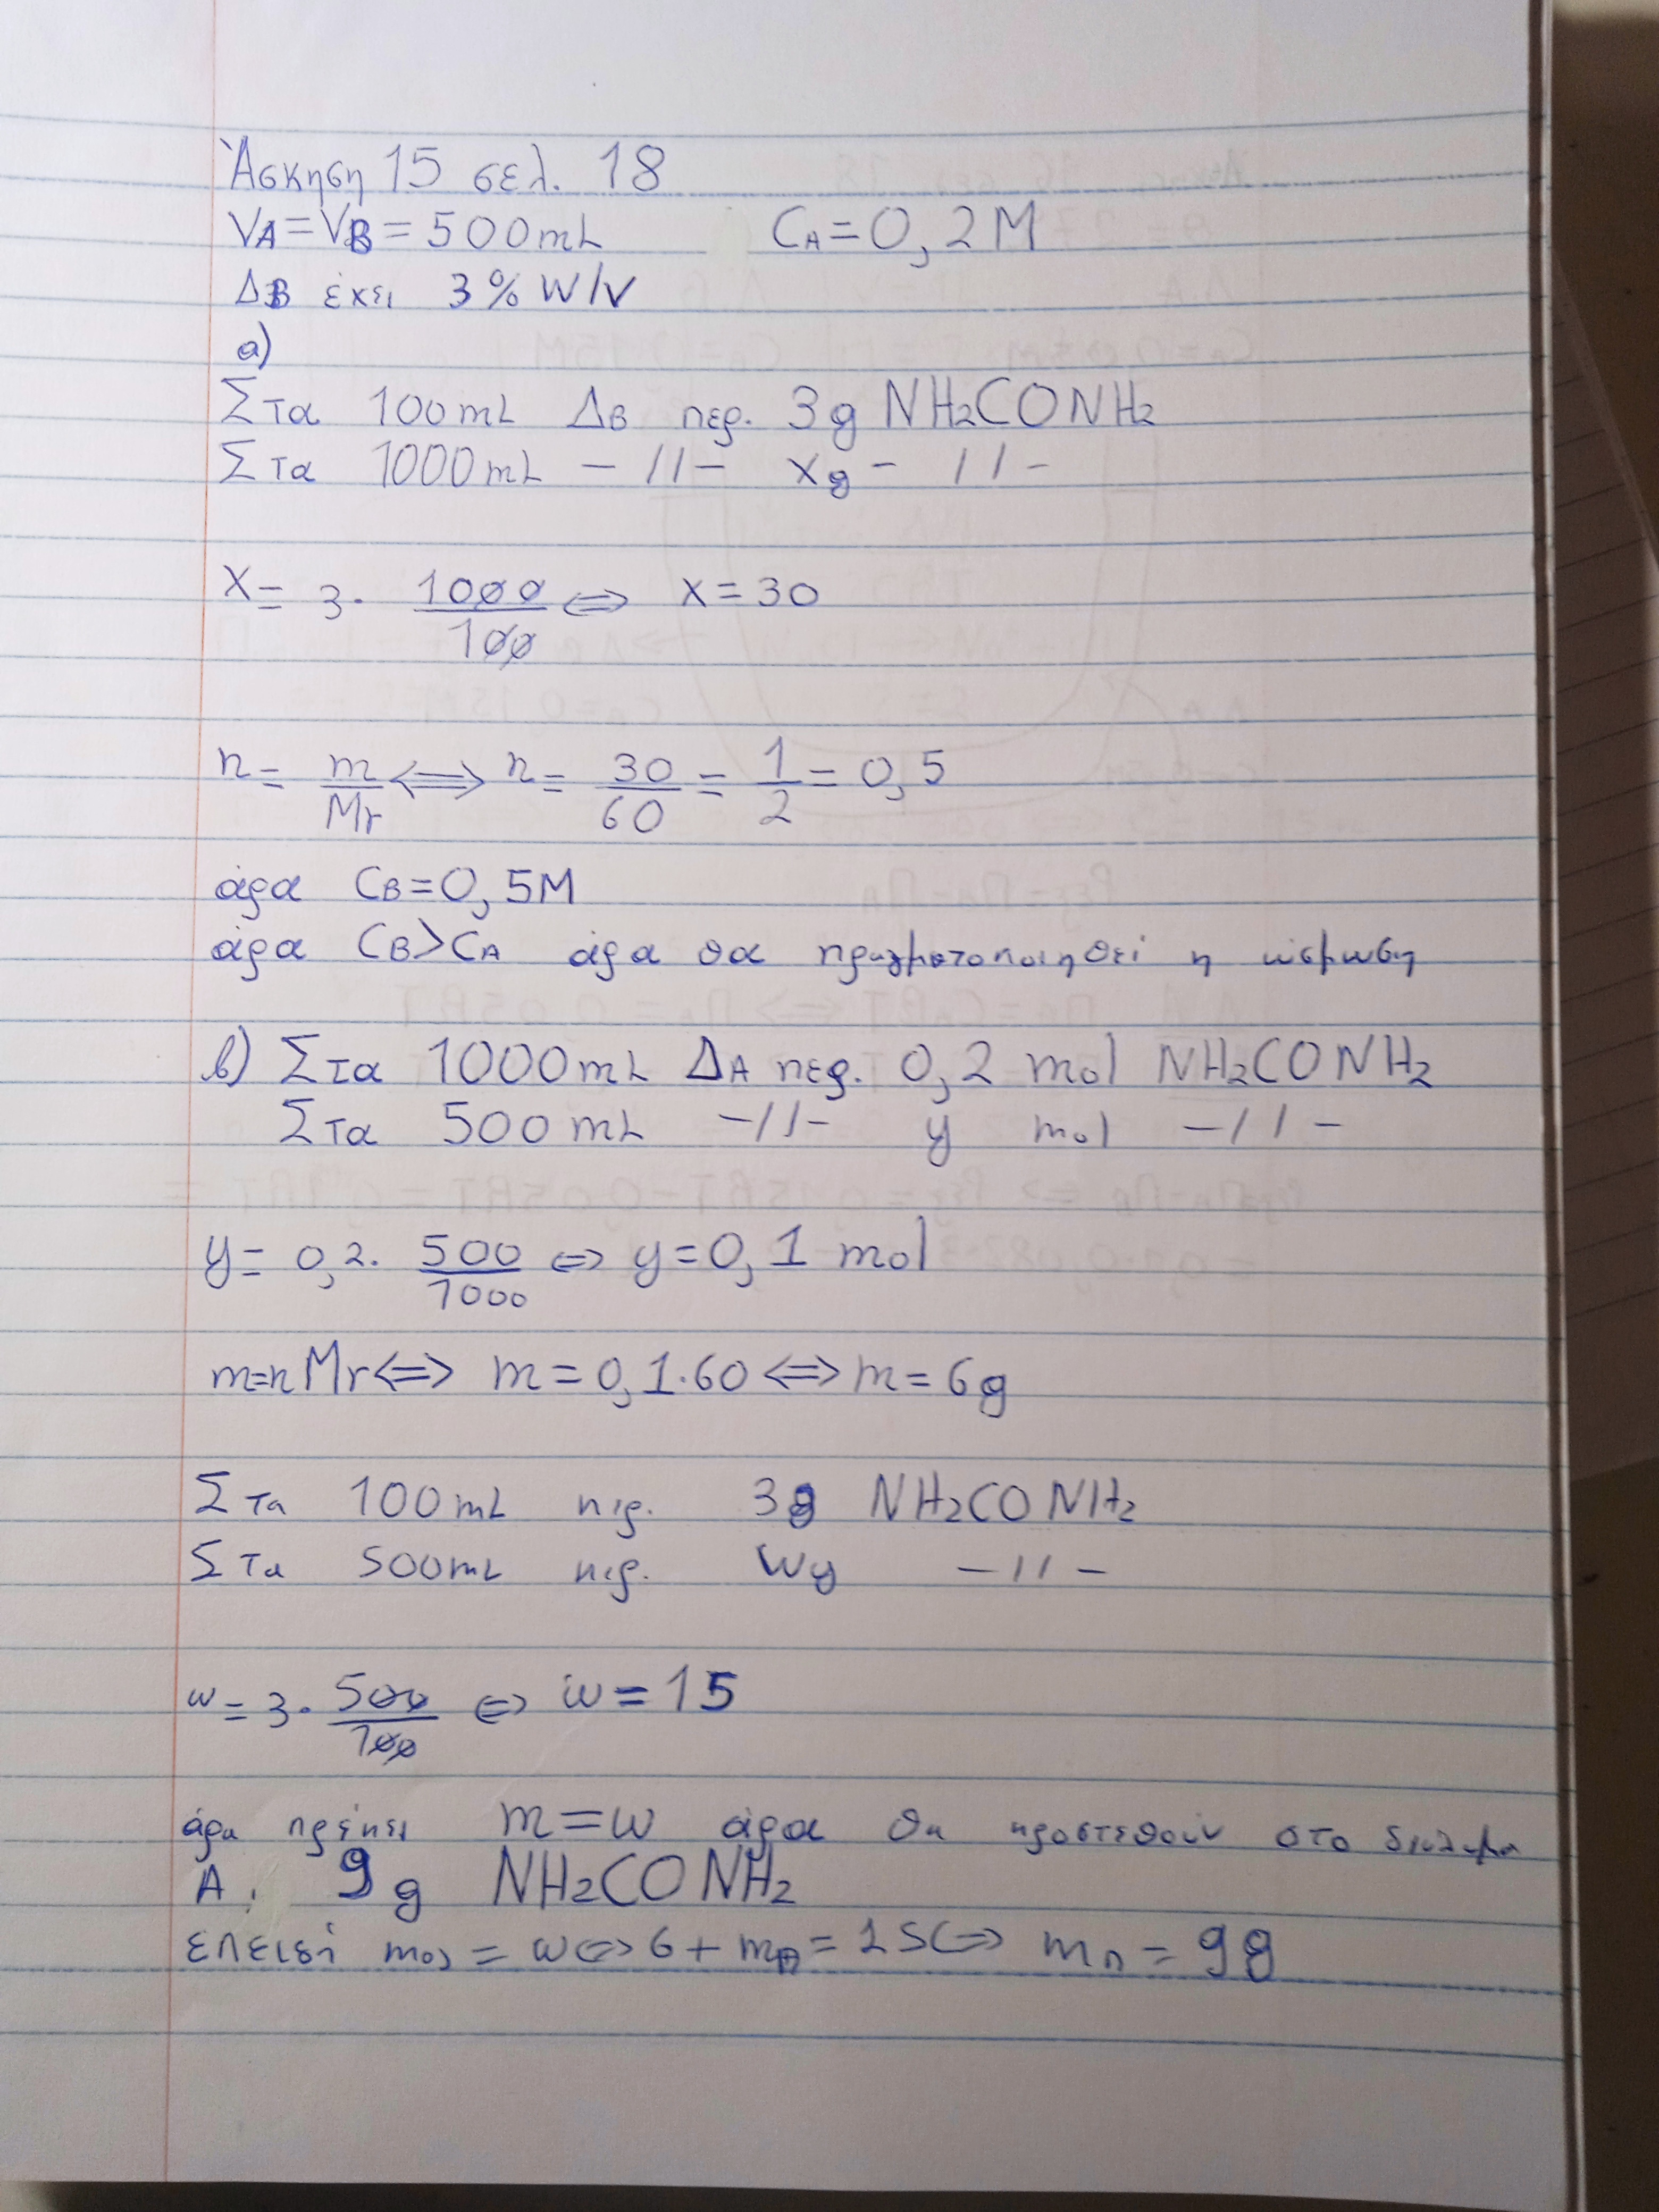 Άσκηση 15 σελ. 18
VA=VB=500mL CA=0,2M
ΔB έχει 3% W/V
α)
Στα 100mL ΔB περ. 3g NH2CONH2
Στα 1000mL -//- xg -//-
x= 3· 1000/100 <=> x=30
n= m/Mr <=> n= 30/60 = 1/2 = 0,5
άρα CB=0,5M
άρα CB>CA άρα θα πραγματοποιηθεί η ώσμωση
β) Στα 1000mL ΔA περ. 0,2 mol NH2CONH2
Στα 500mL -//- y mol -//-
y= 0,2· 500/1000 <=> y=0,1 mol
m=nMr <=> m=0,1·60 <=> m=6g
Στα 100mL περ. 3g NH2CONH2
Στα 500mL περ. Wg -//-
w=3· 500/100 <=> w=15
άρα πρέπει m=w άρα θα προστεθούν στο διάλυμα
A. 9g NH2CONH2
επειδή mολ=w<=>6+mπ=15<=> mπ=9g